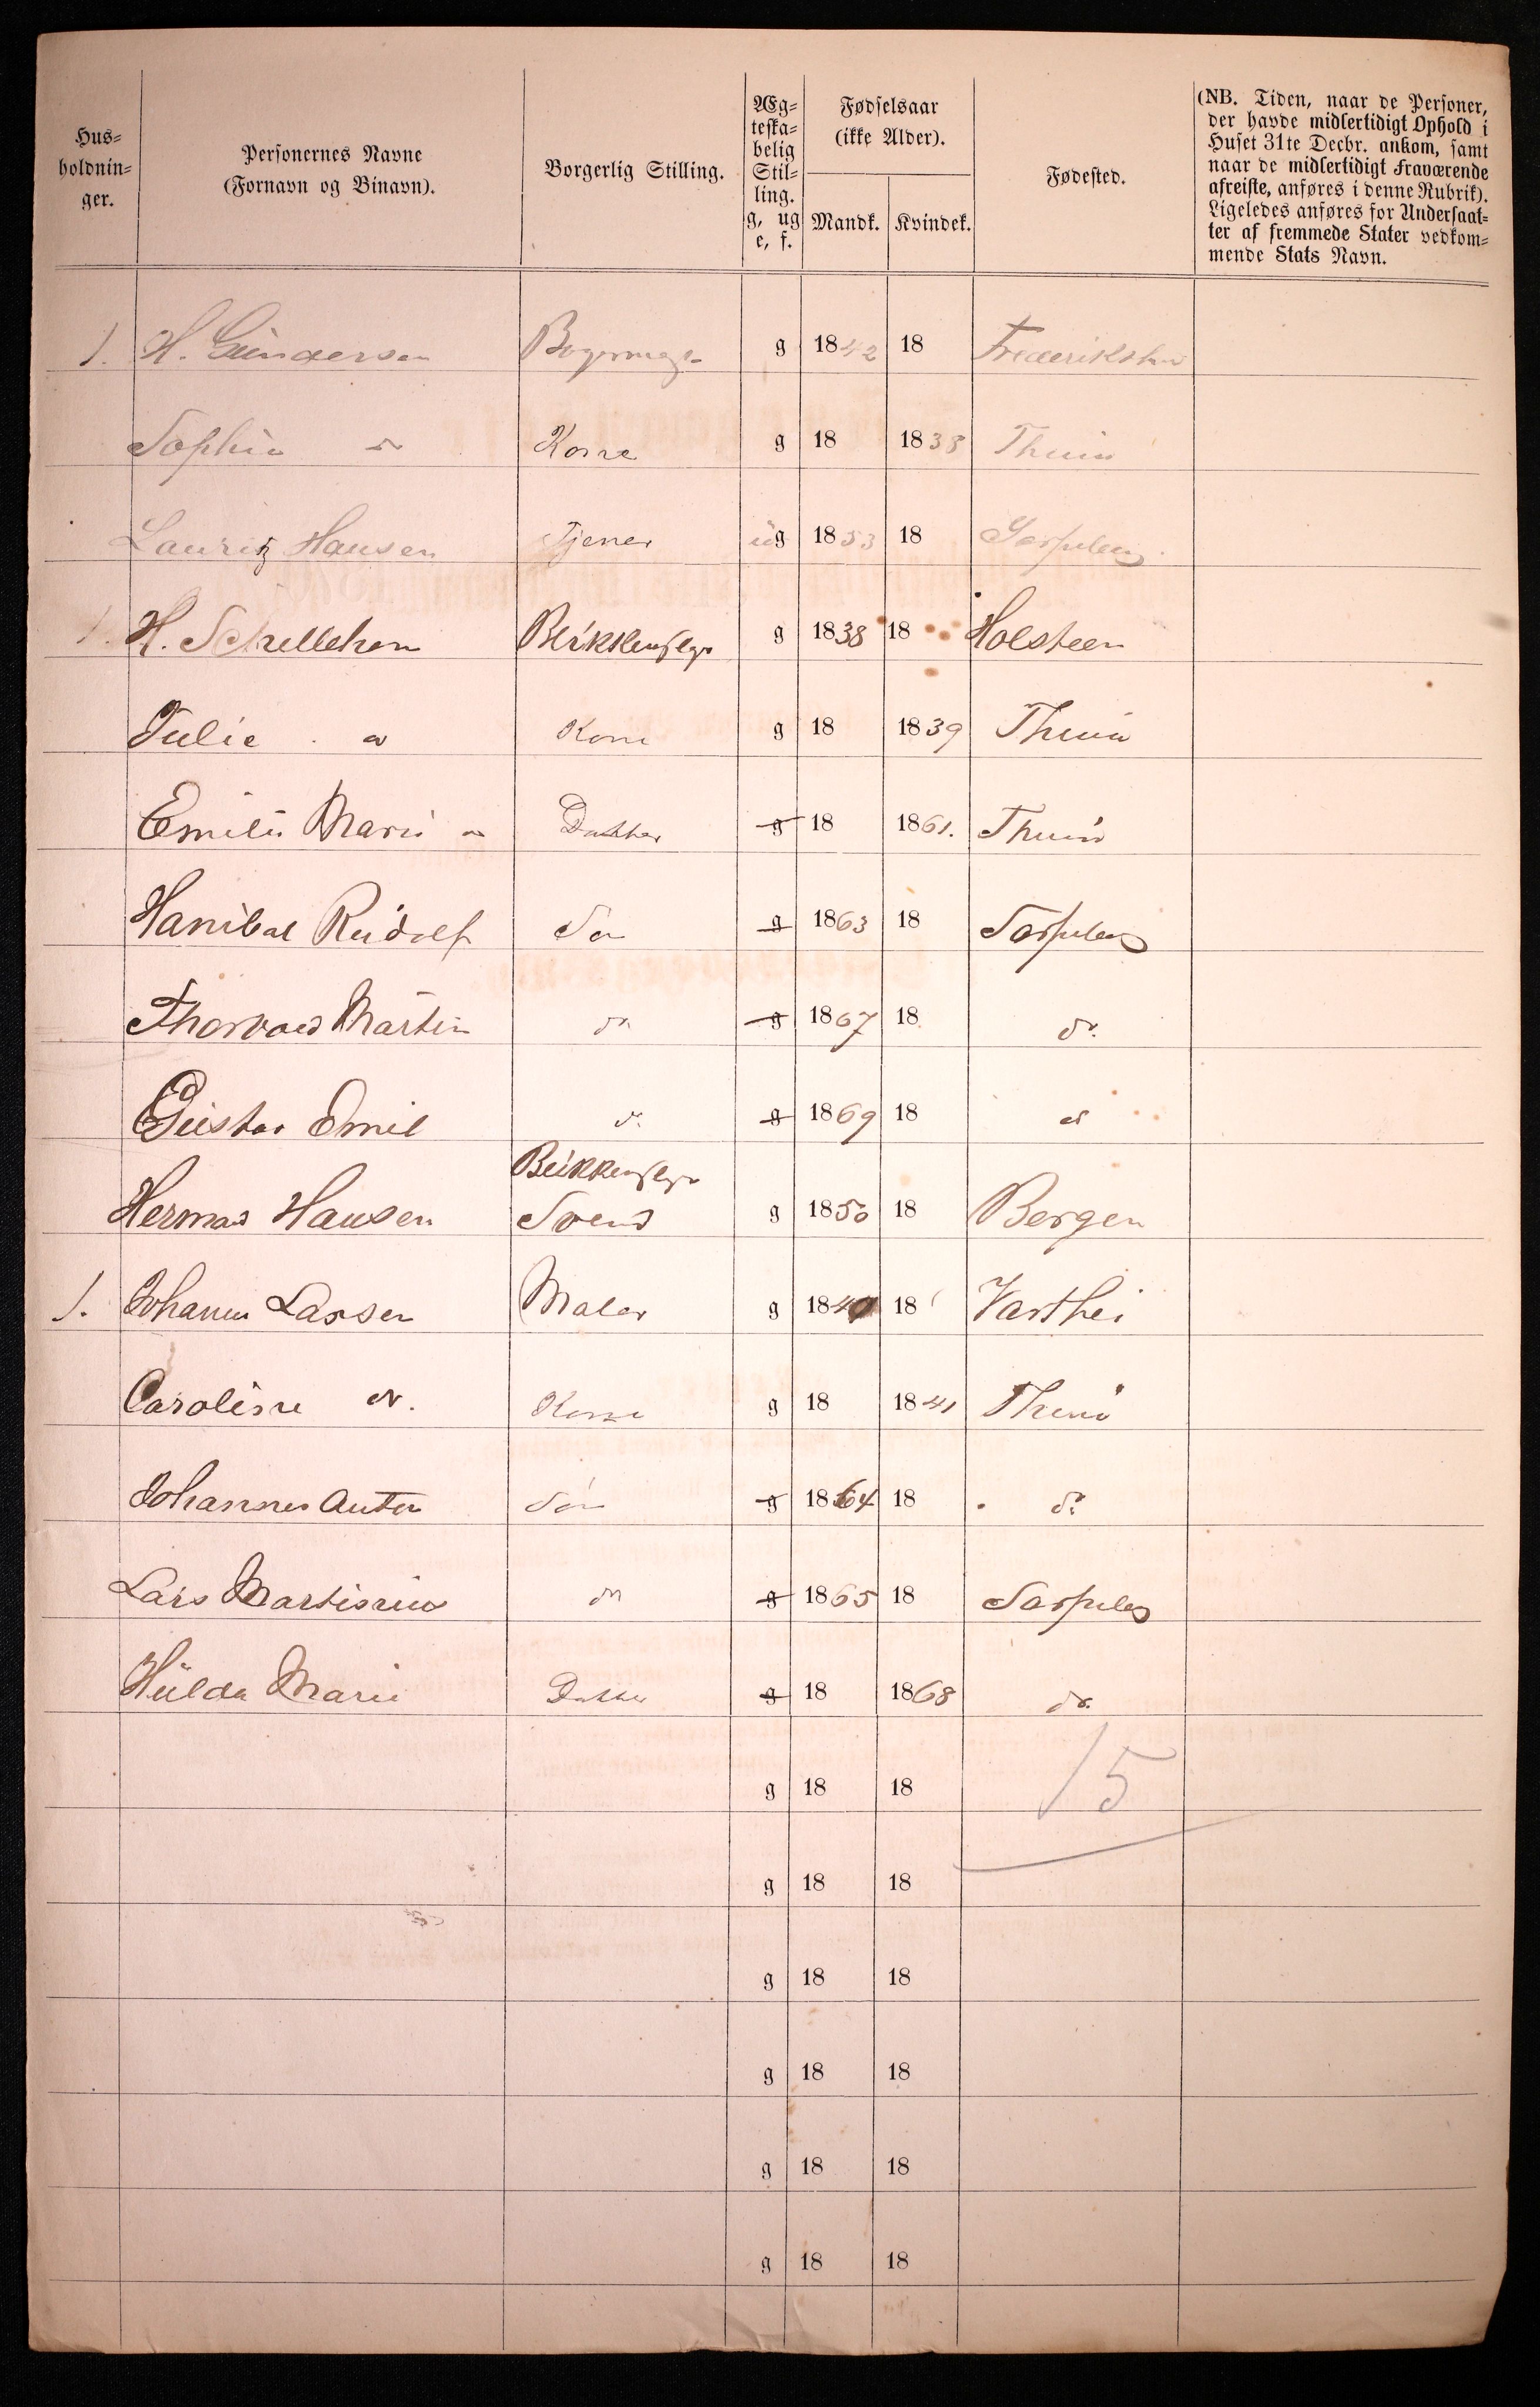 Hus-
holdnin-
ger.
Personernes Navne
(Fornavn og Binavn).
Borgerlig Stilling.
Æg-
teska-
belig
Stil-
ling.
g, ug
e, f.
Fødselsaar
(ikke Alder).
Mandk. Kvindek.
Fødested.
(NB. Tiden, naar de Personer,
der havde midlertidigt Ophold i
Huset 31te Decbr. ankom, samt
naar de midlertidigt Fraværende
afreiste, anføres i denne Rubrik).
Ligeledes anføres for Undersaat-
ter af fremmede Stater vedkom-
mende Stats Navn.
1. H. Gundersen g 1842 18
Sophie do Kone g 18 1838 Thunø
Lauritz Hansen Tjener ug 1853 18 Sarpsborg
1. H. Schellehom g 1838 18 Holsteen
Julie do Kone g 18 1839 Thunø
Emilie Marie do Datter g 18 1861. Thunø
Hanibal Rudolf Søn g 1863 18 Sarpsborg
Thorvald Martin do g 1867 18 do.
Gustav Emil do. g 1869 18 do
Hermas Hansen Svend g 1850 18 Bergen
1. Johannes Larsen Maler g 184 18
Caroline do. Kone g 18 1841 Thunø
Johannes Anton Søn g 1864 18 do.
Lars Martinius do g 1865 18 Sarpsborg
Hulda Marie Datter g 18 1868 do.
g 18 18 15
g 18 18
g 18 18
g 18 18
g 18 18
g 18 18